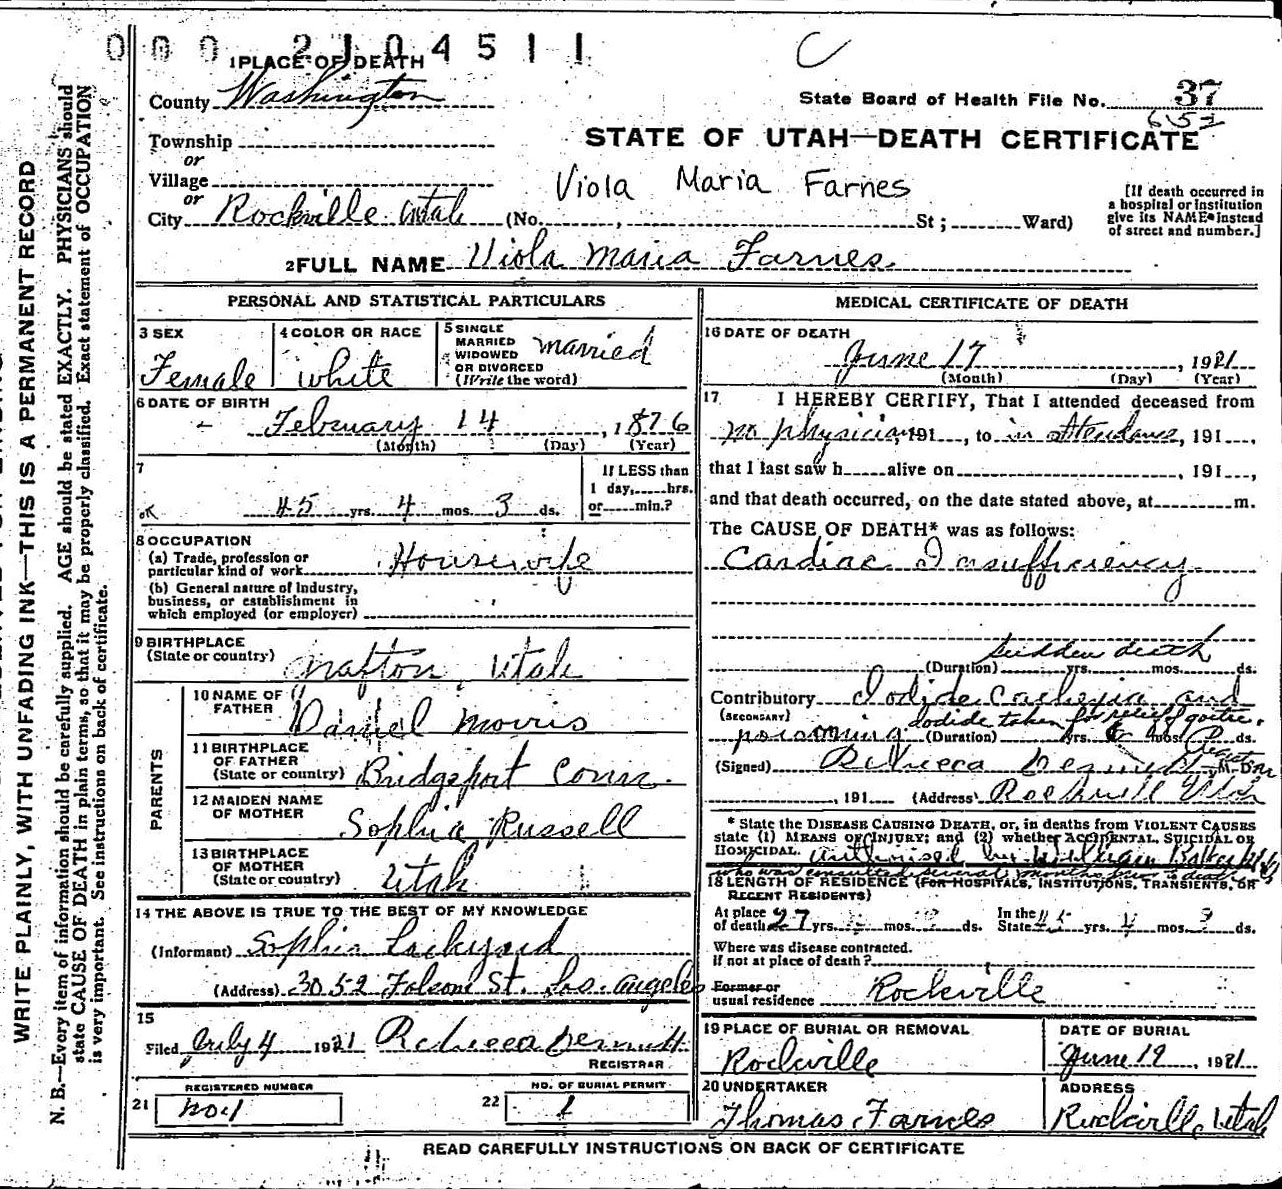 000 2104511 C
1 PLACE OF DEATH
County Washington
State Board of Health File No. 37
652
Township
or
STATE OF UTAH—DEATH CERTIFICATE
Village
or
Viola Maria Farnes
[If death occurred in
a hospital or institution
give its NAME instead
of street and number.]
City Rockville Utah (No. , St ; Ward)
2 FULL NAME Viola Maria Farnes
PERSONAL AND STATISTICAL PARTICULARS
3 SEX
Female
4 COLOR OR RACE
White
5 SINGLE
MARRIED
WIDOWED
OR DIVORCED
(Write the word)
married
6 DATE OF BIRTH
February 14, 1876
(Month) (Day) (Year)
7
ok 45 yrs. 4 mos. 3 ds.
If LESS than
1 day, hrs.
or min.?
8 OCCUPATION
(a) Trade, profession or
particular kind of work Housewife
(b) General nature of Industry,
business, or establishment in
which employed (or employer)
9 BIRTHPLACE
(State or country) Utah
PARENTS
10 NAME OF
FATHER
Daniel Morris
11 BIRTHPLACE
OF FATHER
(State or country) Bridgeport Conn.
12 MAIDEN NAME
OF MOTHER
Sophia Russell
13 BIRTHPLACE
OF MOTHER
(State or country) Utah
14 THE ABOVE IS TRUE TO THE BEST OF MY KNOWLEDGE
(Informant) Sophia
(Address) 3052 Folsom St. Los Angeles
15
Filed July 4 1921 Rebecca
REGISTRAR
REGISTERED NUMBER
21 no. 1
NO. OF BURIAL PERMIT
22 1
MEDICAL CERTIFICATE OF DEATH
16 DATE OF DEATH
June 17, 1921
(Month) (Day) (Year)
17 I HEREBY CERTIFY, That I attended deceased from
no physician 191 , to in Attendance, 191 ,
that I last saw h alive on , 191 ,
and that death occurred, on the date stated above, at m.
The CAUSE OF DEATH* was as follows:
Cardiac Insufficiency
sudden death
(Duration) yrs. mos. ds.
Contributory Iodide Cachexia and
(SECONDARY) Iodide taken for relief of goitre.
poisoning (Duration) yrs. 6 mos. ds.
(Signed) Rebecca
, 191 (Address) Rockville Utah
* State the DISEASE CAUSING DEATH, or, in deaths from VIOLENT CAUSES
state (1) MEANS OF INJURY; and (2) whether ACCIDENTAL, SUICIDAL OR
HOMICIDAL. Authorised by William
who was consulted several months prior to death
18 LENGTH OF RESIDENCE (FOR HOSPITALS, INSTITUTIONS, TRANSIENTS, OR
RECENT RESIDENTS)
At place
of death 27 yrs. mos. ds.
In the
State 45 yrs. 4 mos. 3 ds.
Where was disease contracted.
if not at place of death?
Former or
usual residence Rockville
19 PLACE OF BURIAL OR REMOVAL
Rockville
DATE OF BURIAL
June 19, 1921
20 UNDERTAKER
Thomas Farnes
ADDRESS
Rockville, Utah
READ CAREFULLY INSTRUCTIONS ON BACK OF CERTIFICATE
WRITE PLAINLY, WITH UNFADING INK—THIS IS A PERMANENT RECORD
N. B.—Every item of information should be carefully supplied. AGE should be stated EXACTLY. PHYSICIANS should
state CAUSE OF DEATH in plain terms, so that it may be properly classified. Exact statement of OCCUPATION
is very important. See instructions on back of certificate.